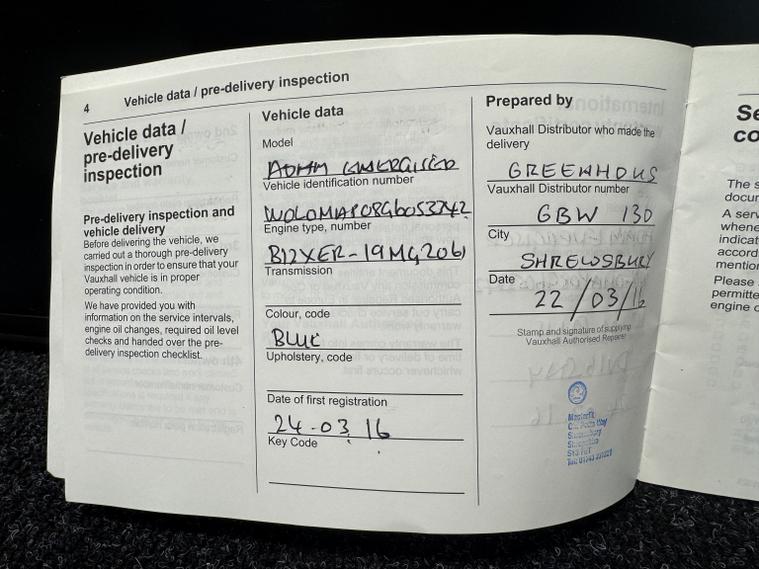 4 Vehicle data / pre-delivery inspection
Vehicle data /
pre-delivery
inspection
Pre-delivery inspection and
vehicle delivery
Before delivering the vehicle, we
carried out a thorough pre-delivery
inspection in order to ensure that your
Vauxhall vehicle is in proper
operating condition.
We have provided you with
information on the service intervals,
engine oil changes, required oil level
checks and handed over the pre-
delivery inspection checklist.
Vehicle data
Model
ADAM ENERGISED
Vehicle identification number
W0L0MAP08G6053742
Engine type, number
B12XER-19MG2061
Transmission
Colour, code
BLUE
Upholstery, code
Date of first registration
24.03.16
Key Code
Prepared by
Vauxhall Distributor who made the
delivery
GREENHOUS
Vauxhall Distributor number
GBW 130
City
SHREWSBURY
Date
22/03/16
Stamp and signature of supplying
Vauxhall Authorised Repairer
Way
Shrewsbury
Shropshire
Se
co
The s
docum
A serv
whene
indicat
accord
mention
Please
permitte
engine o